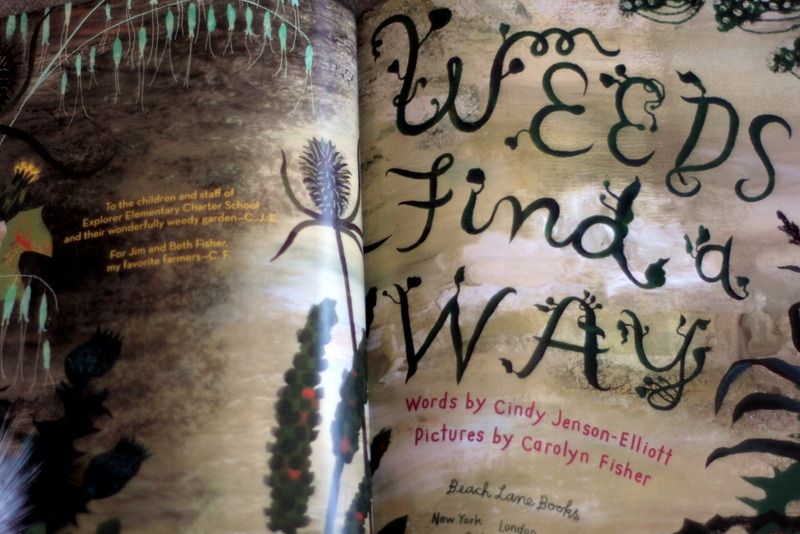 To the children and staff of
Explorer Elementary Charter School
and their wonderfully weedy garden—C. J-E.
For Jim and Beth Fisher,
my favorite farmers—C. F.
WEEDS
Find a
WAY
Words by Cindy Jenson-Elliott
Pictures by Carolyn Fisher
Beach Lane Books
New York London